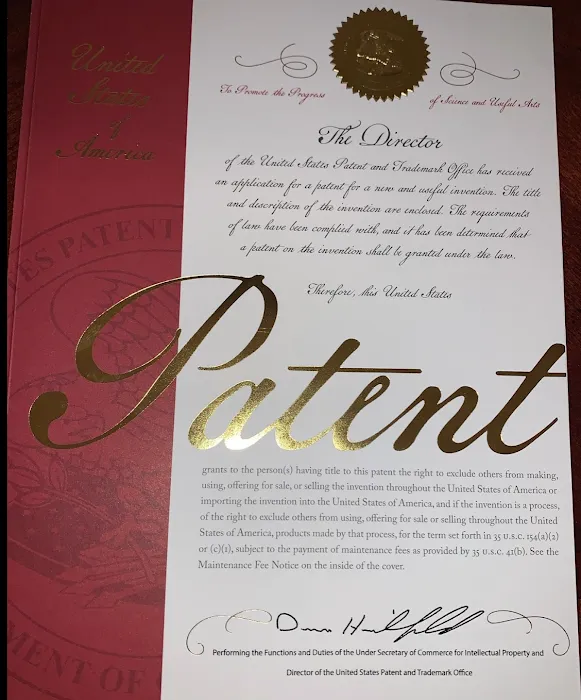 United
States
of
America
To Promote the Progress
of Science and Useful Arts
The Director
of the United States Patent and Trademark Office has received
an application for a patent for a new and useful invention. The title
and description of the invention are enclosed. The requirements
of law have been complied with, and it has been determined that
a patent on the invention shall be granted under the law.
Therefore, this United States
ES PATENT
Patent
grants to the person(s) having title to this patent the right to exclude others from making,
using, offering for sale, or selling the invention throughout the United States of America or
importing the invention into the United States of America, and if the invention is a process,
of the right to exclude others from using, offering for sale or selling throughout the United
States of America, products made by that process, for the term set forth in 35 U.S.C. 154(a)(2)
or (c)(1), subject to the payment of maintenance fees as provided by 35 U.S.C. 41(b). See the
Maintenance Fee Notice on the inside of the cover.
MENT OF
Performing the Functions and Duties of the Under Secretary of Commerce for Intellectual Property and
Director of the United States Patent and Trademark Office